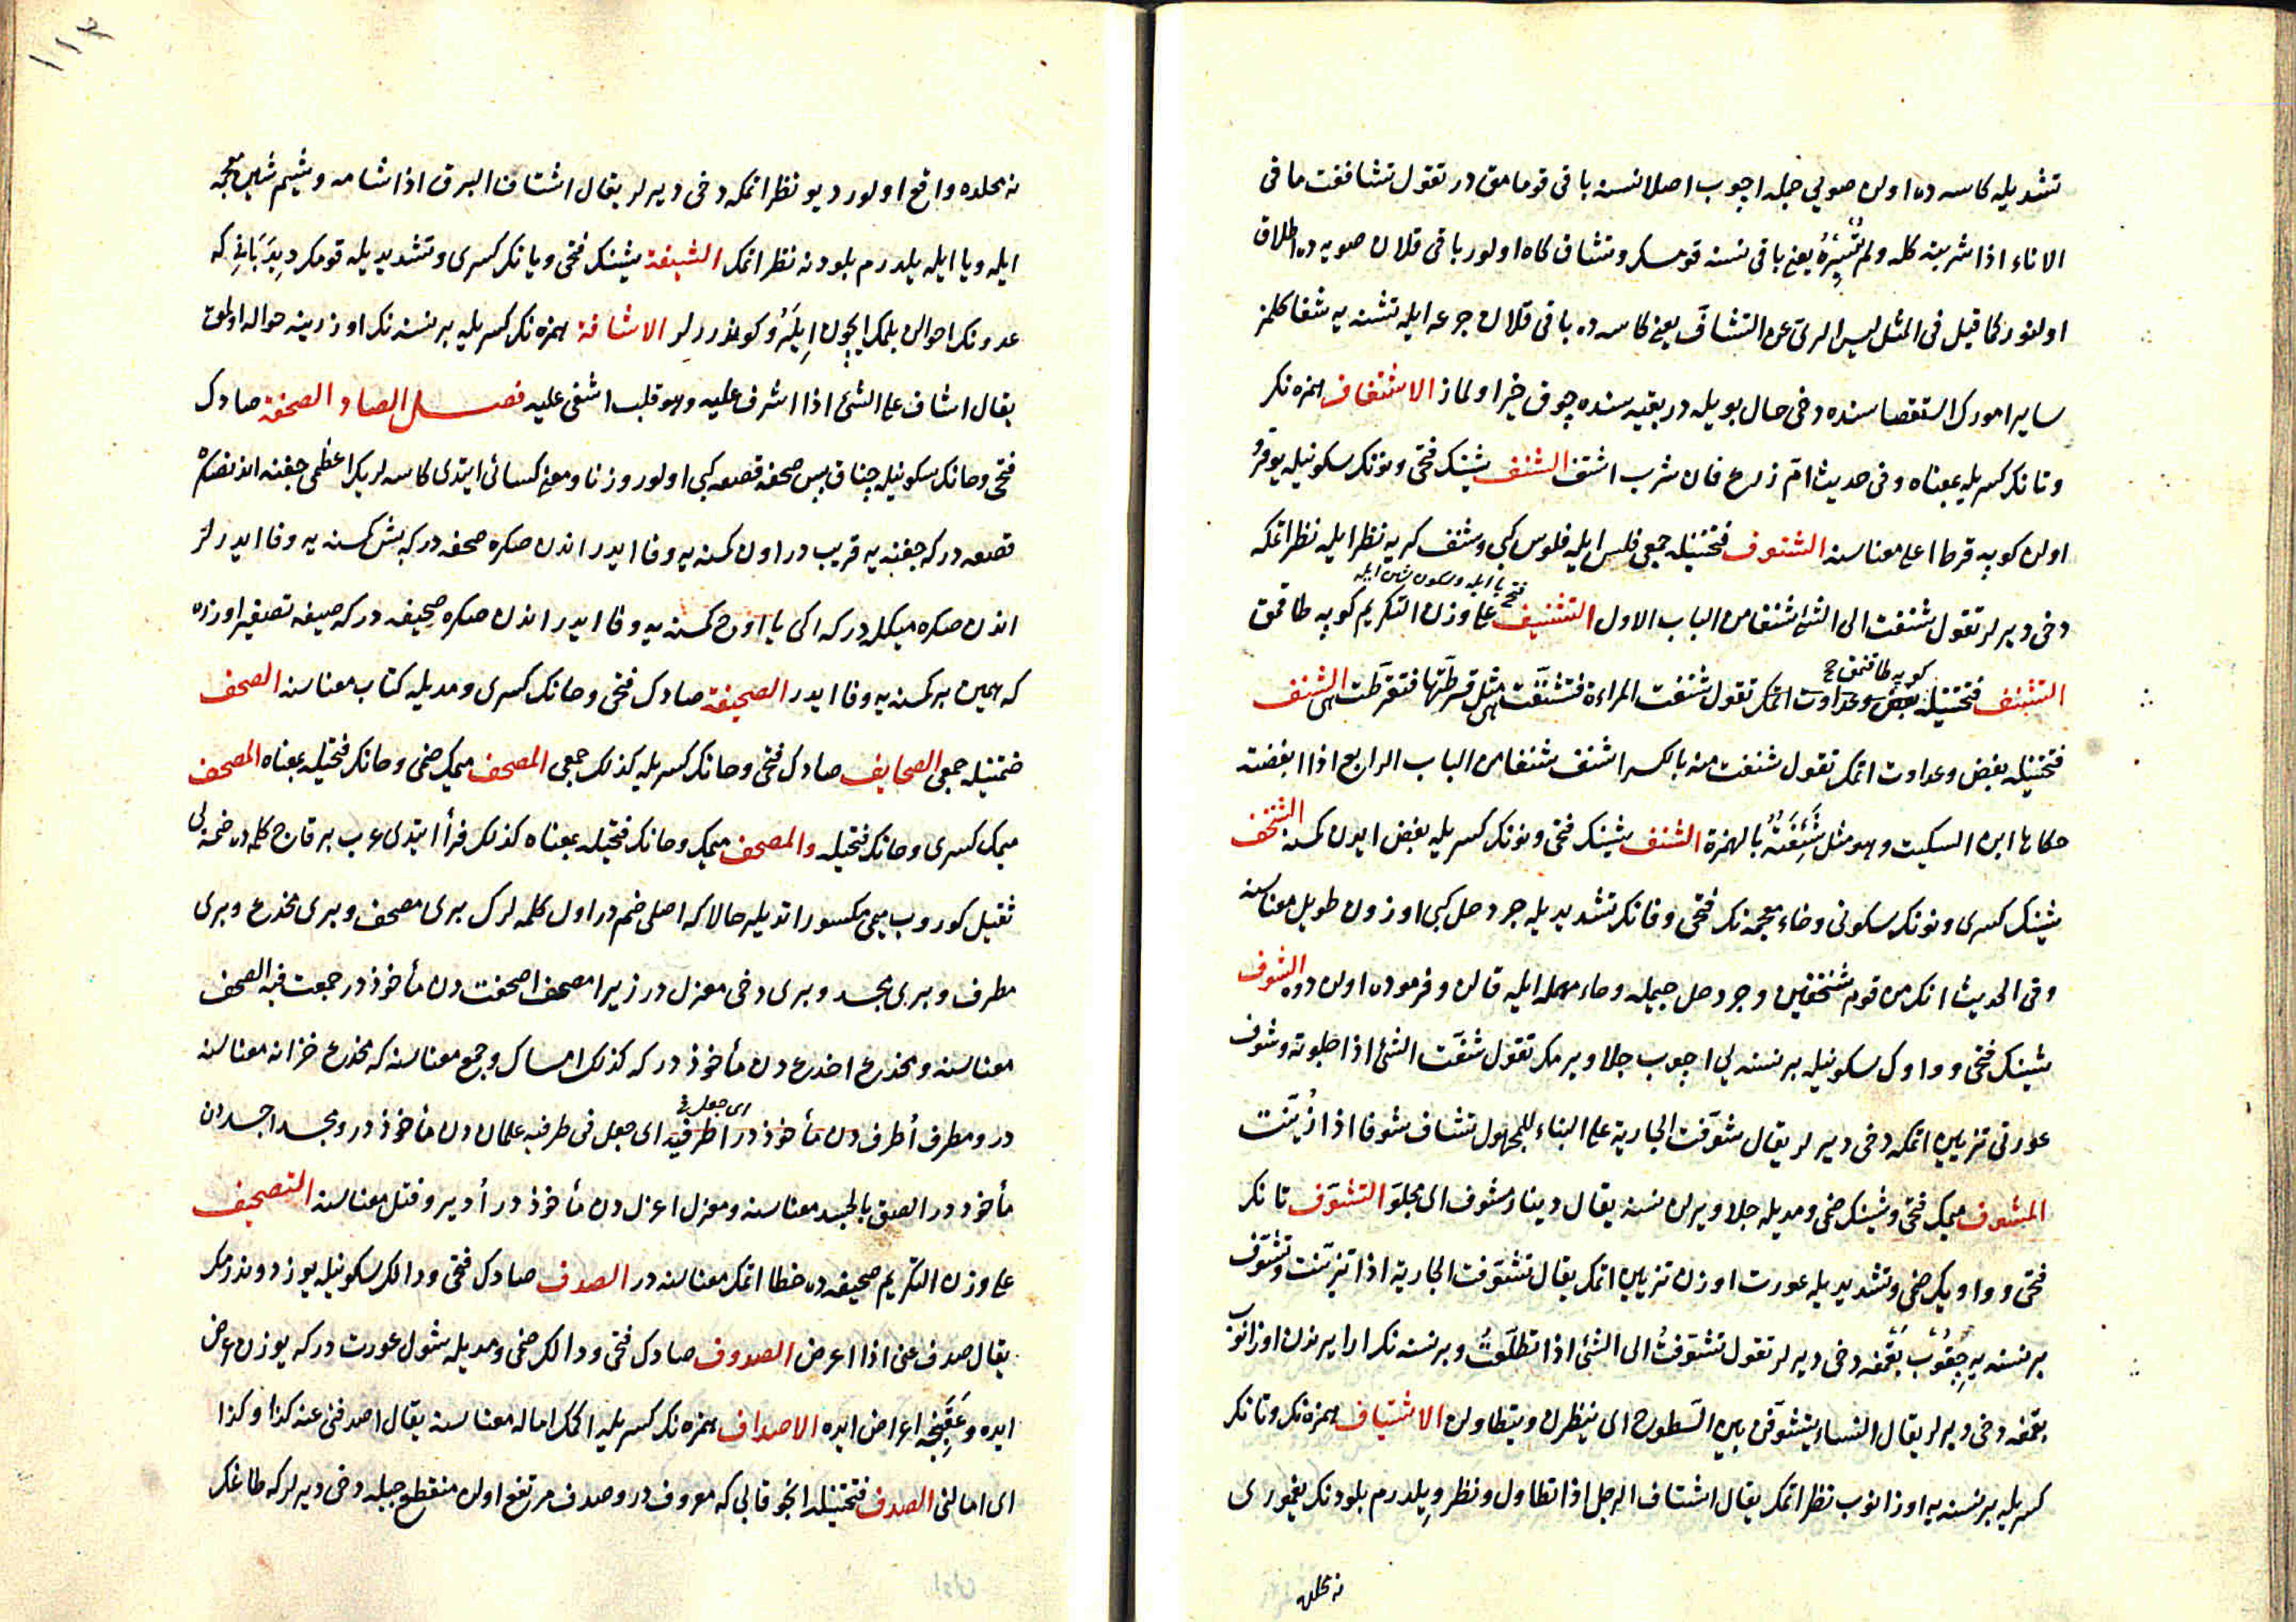 تشديله كاسه ده اولان صويي جمله اچوب اصلا نسنه باقى قومامق در تقول تشاففت ما فى
الاناء اذا شربته كله ولم تُسْئِرْهُ يعنى باقى نسنه قومسكز وتشاف كاه اولور باقى قلان صويه ده اطلاق
اولنور كما قيل فى المثل ليس الرىّ عن التشافّ يعنى كاسه ده باقى قلان جرعه ايله تشنه يه شفا كلمز
ساير امورك استقصا سنده دخى حال بويله در بقيه سنده چوق خير اولماز الاشتفاف همزه نك
وتانك كسريله بمعناه وفى حديث امّ زرع فان شرب اشتف الشنف شينك فتحى ونونك سكونيله يوقرو
اولان كوپه قرطا اعلى معناسنه الشنوف ضمتيله جمعى فلس ايله فلوس كبى وشنف كريه نظر ايله نظر اتمكه
فتح يا ايله وسكون شين ايله
دخى ديرلر تقول شنفت الى الشئ شنفا من الباب الاول التشنيف على وزن التكريم كوپه طاقمق
كوپه طاقنمق صح
التشنف فتحتيله بغض وعداوت اتمك تقول شنفت المراءة فتشنّفت هى مثل قرطّتها فتقرطّت هى الشنف
فتحتيله بغض وعداوت اتمك تقول شنفت منه بالكسر اشنف شنفا من الباب الرابع اذا ابغضته
حكاها ابن السكيت وهو مثل شَئِفْتُهُ بالهمزة الشنف شينك فتحى ونونك كسريله بغض ايدن كمسنه الشنخف
شينك كسرى ونونك سكونى وخاء معجمه نك فتحى وفانك تشديديله جردحل كبى اوزون طويل معناسنه
وفى الحديث انك من قوم شنخفين وجردحل جيمله وحاء مهمله ايله قالن وفرمود اولان دوه الشوف
شينك فتحى وواوك سكونيله بر نسنه يى اچوب جلا ويرمك تقول شفت الشئ اذا جلوته وشوف
عورتى تزيين اتمكه دخى ديرلر يقال شوّفت الجارية على البناء للمجهول تشاف شوفا اذا زُيّنت
المشوف ميمك فتحى وشينك ضمى ومديله جلا ويرلن نسنه يقال دينار مشوف اى مجلوّ التشوّف تانك
فتحى وواويك ضمى وتشديديله عورت اوزن تزيين اتمك يقال تشوّفت الجارية اذا تزيّنت وتشوّف
بر نسنه يه چقوب بقمغه دخى ديرلر تقول تشوّفتُ الى الشئ اذا تطلّعتُ وبر نسنه نك ارا يرندن اوزانوب
بقمغه دخى ديرلر يقال النساء يتشوّفن من السّطوح اى ينظرن ويتطاولن الاشتياف همزه نك وتانك
كسريله بر نسنه يه اوزانوب نظر اتمك يقال اشتاف الرجل اذا تطاول ونظر ويلدرم بلودنك يغمورى
نه محلده
١١٣
نه محلده واقع اولور ديو نظر اتمكه دخى ديرلر يقال اشتاف البرق اذا شامه وشيم شين معجمه
ايله ويا ايله يلدرم بلودنه نظر اتمك الشيفة شينك فتحى ويانك كسرى وتشديديله قومك ديدبانى كه
عدونك احوالن بلمك ايچون ايلرو كوندررلر الاشافة همزه نك كسريله بر نسنه نك اوزرينه حواله اولمق
يقال اشاف على الشئ اذا اشرف عليه وهو قلب اشفى عليه فصل الصاد الصحفة صادك
فتحى وحانك سكونيله چناق پس صحفه قصعه كبى اولور وزنا ومعنى كسائى ايتدى كاسه لريك اعظمى جفنه اندنصكره
قصعه در كه جفنه يه قريب در اون كمسنه يه وفا ايدر اندن صكره صحفه در كه بش كمسنه يه وفا ايدر
اندن صكره ميكله در كه ايكى يا اوچ كمسنه يه وفا ايدر اندن صكره صحيفه در كه صيغه تصغير اوزره
كه همين بر كمسنه يه وفا ايدر الصحيفة صادك فتحى وحانك كسرى ومديله كتاب معناسنه الصحف
ضمتيله جمعى الصحايف صادك فتحى وحانك كسريله كذلك جمعى المصحف ميمك ضمى وحانك فتحيله بمعناه المصحف
ميمك كسرى وحانك فتحيله والمصحف ميمك وحانك فتحيله بمعناه كذلك فرأ ايتدى عرب بر قاچ كلمه ده ضمه يى
ثقيل كوروب ميمى مكسور اتديلر حالا كه اصلى ضم در اول كلمه لرك برى مصحف وبرى مخدع وبرى
مطرف وبرى مجسد وبرى دخى مغزل در زيرا مصحف اصحفت دن مأخوذ در جمعت فيه الصحف
معناسنه ومخدع اخدع دن مأخوذ در كه كذلك امساك وجمع معناسنه كه مخدع خزانه معناسنه
اى جعل فى
در ومطرف أُطرف دن مأخوذ در اطرفيه اى جعل فى طرفيه علمان دن مأخوذ در ومجسد اجسد دن
مأخوذ در الصق بالجسد معناسنه ومغزل اغزل دن مأخوذ در أدير وفتل معناسنه التصحيف
على وزن التكريم صحيفه ده خطا اتمك معناسنه در الصدف صادك فتحى ودالك سكونيله يوز دوندرمك
يقال صدف عنى اذا اعرض الصدوف صادك فتحى ودالك ضمى ومديله شول عورت در كه يوزن عرض
ايده وعَقِبجه اعراض ايده الاصداف همزه نك كسريله اكمك اماله معناسنه يقال اصدفنى عنه كذا وكذا
اى امالنى الصدف فتحتيله انجو قابى كه معروف در وصدف مرتفع اولان منقطع جبله دخى ديرلر كه طاغك